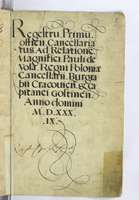 Regestru Primu
officii Cancellaria
tus Ad Relatione
Magnifici Pauli de
Vola Regni Poloniæ
Cancellarii Burgra
bii Cracovien̄ et ca
pitanei Gostinen̄.
Anno domini
M. D. XXX.
IX.